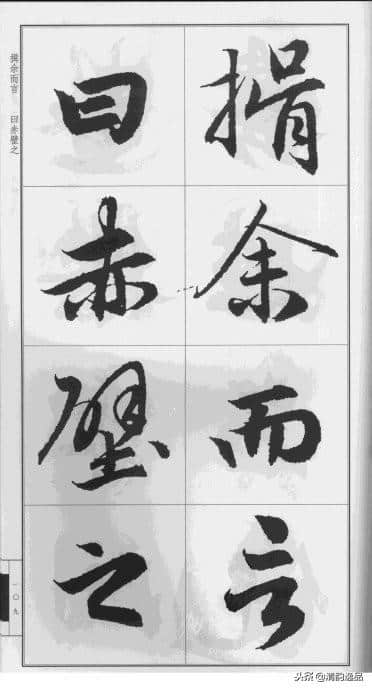 揖余而言
曰赤壁之
揖余而言 曰赤壁之
一〇九
头条@清韵逸品